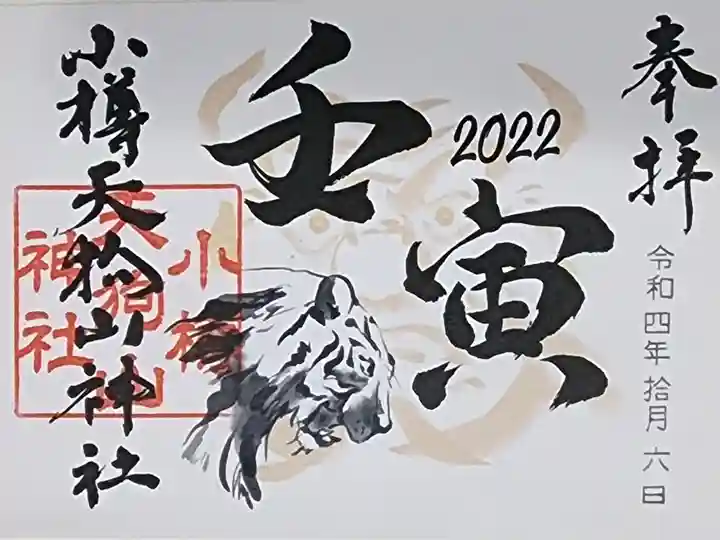 奉拝
令和四年拾月六日
2022
壬寅
小樽天狗山神社
小樽
天狗山
神社